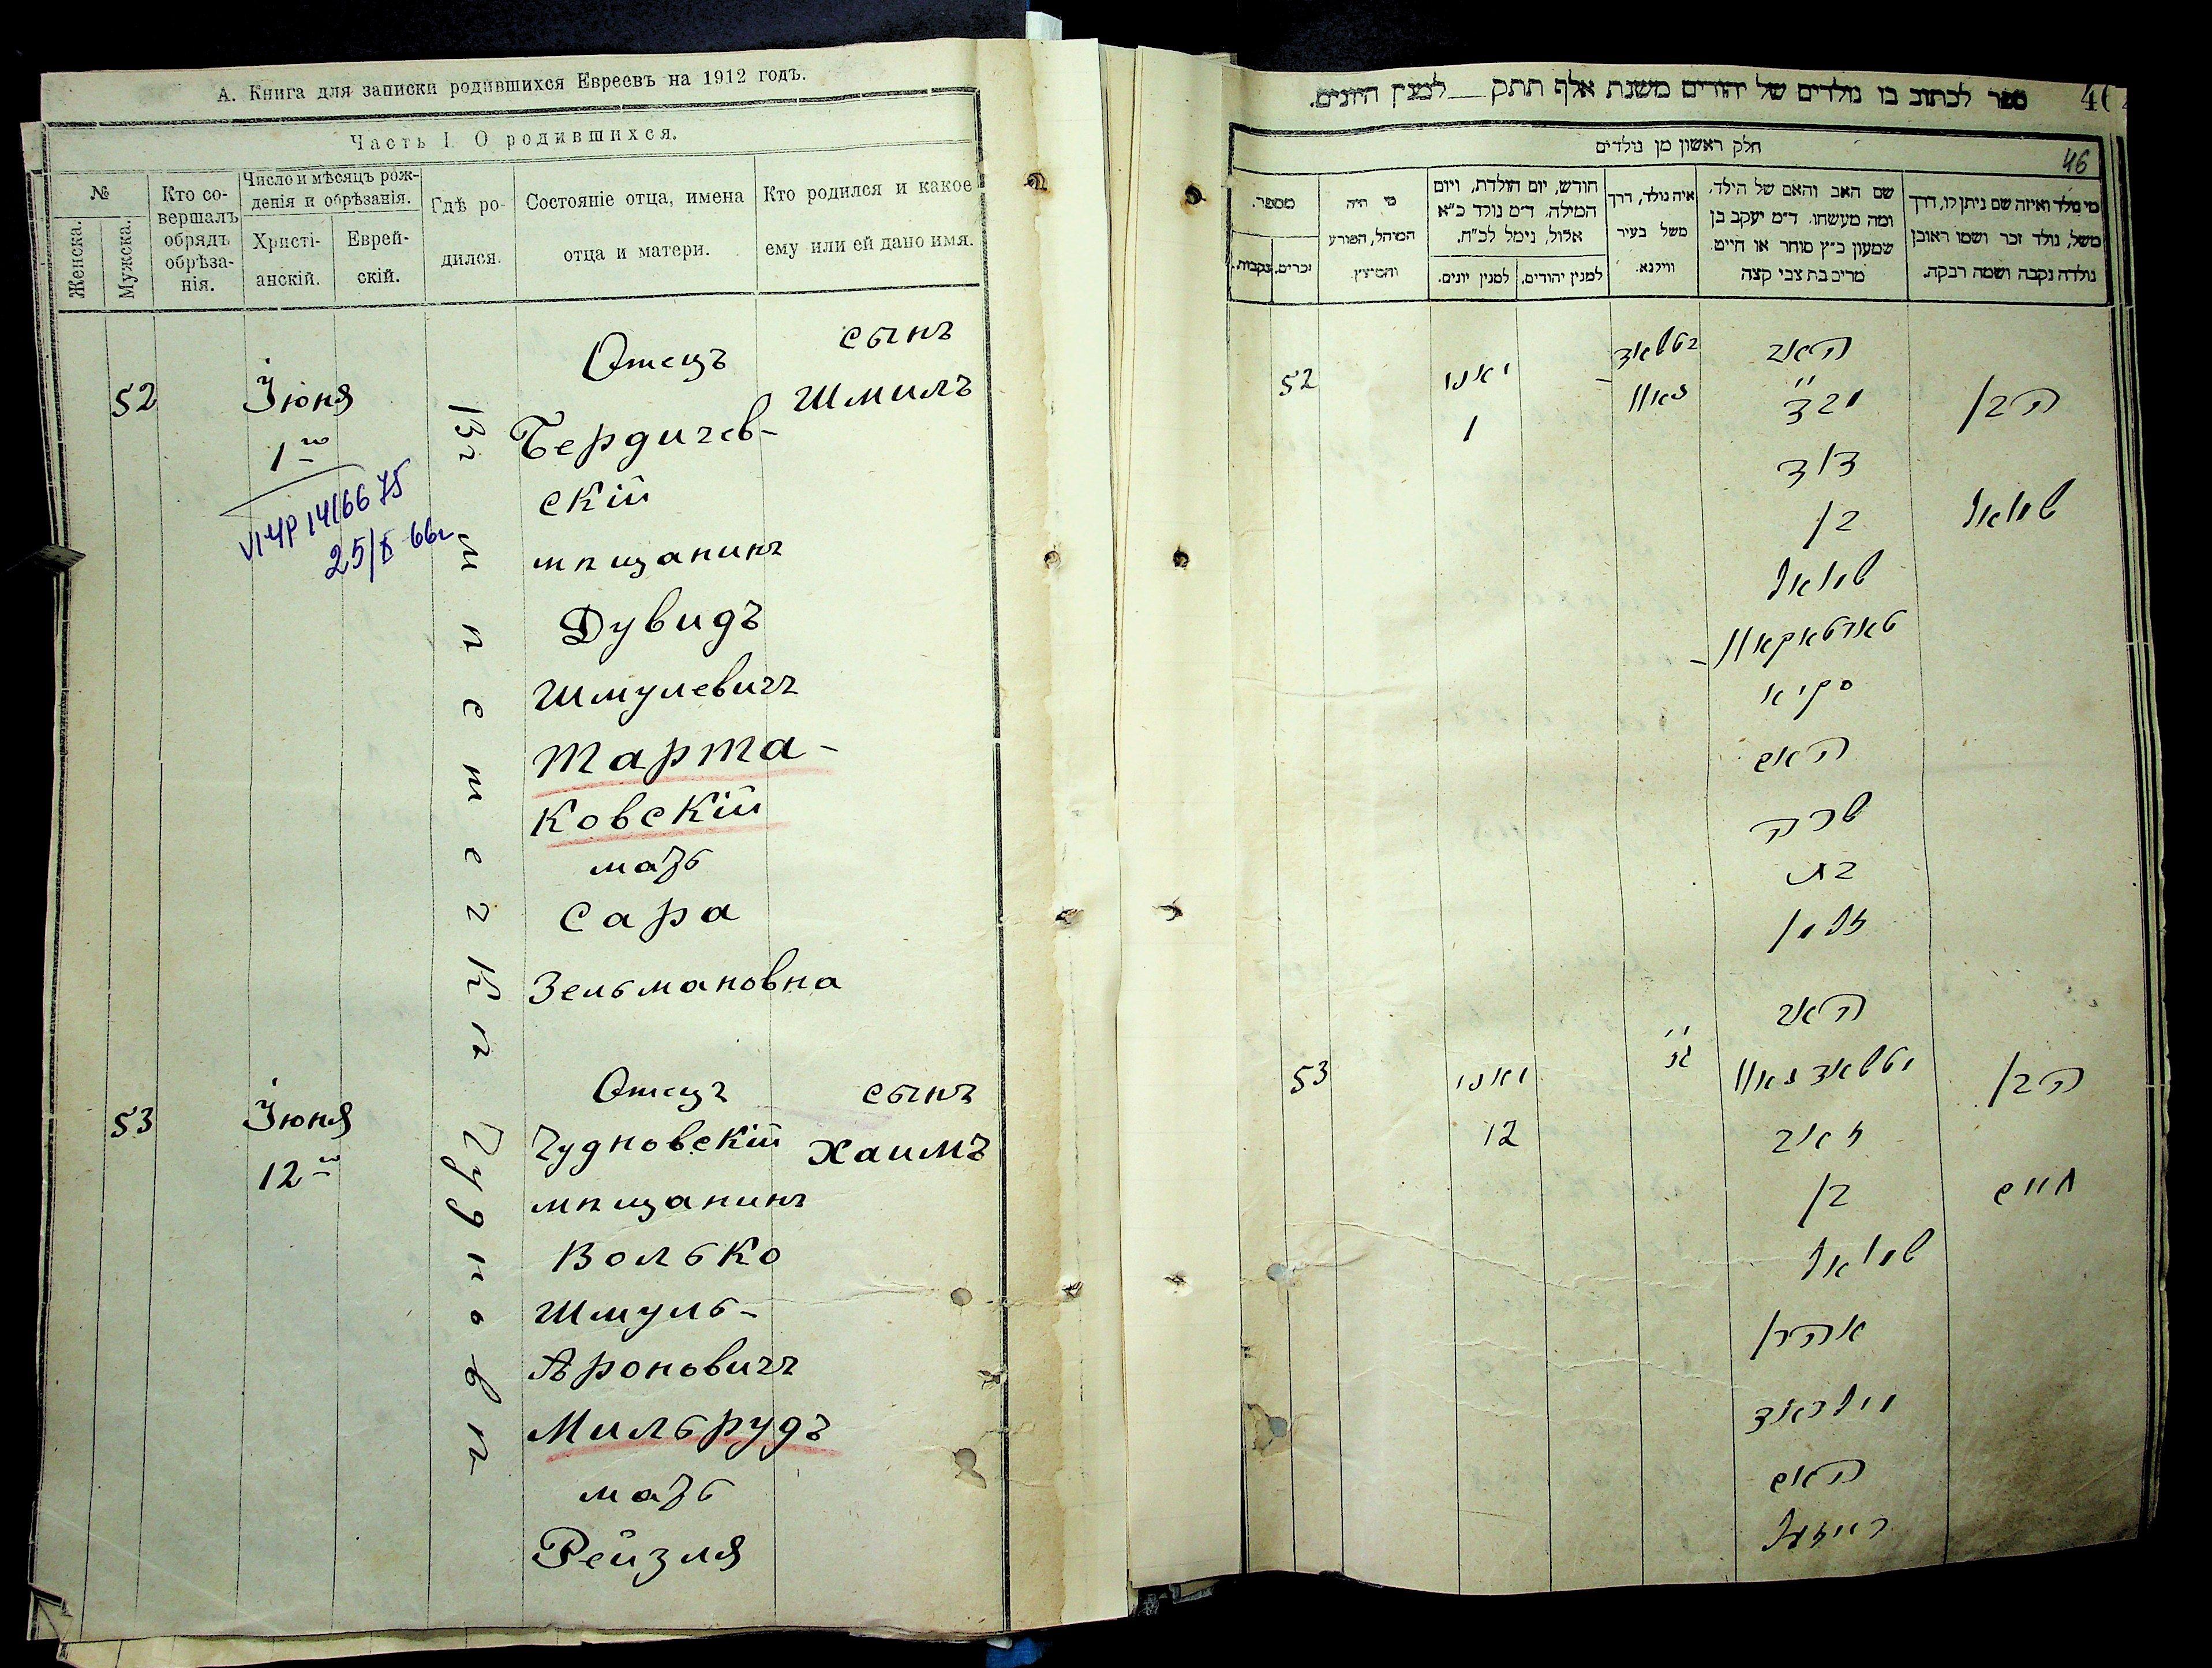 А. Книга для записки родившихся Евреевъ на 1912 годъ.
Часть I О родившихся.
№
Женска.
Мужска.
Кто со-
вершалъ
обрядъ
обрѣза-
нія.
Число и мѣсяцъ рож-
денія и обрѣзанія.
Христі-
анскій.
Еврей-
скій.
Гдѣ ро-
дился.
Состояніе отца, имена
отца и матери.
Кто родился и какое
ему или ей дано имя.
52
Іюня
1го
25/X 66г
Въ мѣстечкѣ Чудновѣ
Отецъ
Бердичев-
скій
мѣщанинъ
Дувидъ
Шмулевичъ
Тарта-
ковскій
мать
Сара
Зельмановна
сынъ
Шмилъ
53
Іюня
12го
Отецъ
Чудновскій
мѣщанинъ
Волько
Шмуль-
Ароновичъ
Мильрудъ
мать
Рейзля
сынъ
Хаимъ
ספר לכתוב בו נולדים של יהודים משנת אלף תתק __ למנין היונים.
46
חלק ראשון מן נולדים
מי נולד ואיזה שם ניתן לו, דרך
משל, נולד זכר ושמו ראובן
נולדה נקבה ושמה רבקה.
שם האב והאם של הילד,
ומה מעשהו. ד״מ יעקב בן
שמעון כ״ץ סוחר או חייט
מרים בת צבי קצה
איה נולד, דרך
משל בעיר
ווילנא.
חודש, יום הולדת, ויום
המילה. ד״מ נולד כ״א
אלול, נימל לכ״ח.
למנין יהודים.
למנין יונים.
מי היה
המוהל, הפורע
והמוצץ
מספר.
זכרים.
נקבות.
52
יאני
1
האב
דוד
בן
שמואל
טארטאקאוו-
סקיא
האם
שרה
בת
זלמן
הבן
שמואל
53
יאני
12
האב
זאב
בן
שמואל
אהרן
מילראד
האם
רייזל
הבן
חיים